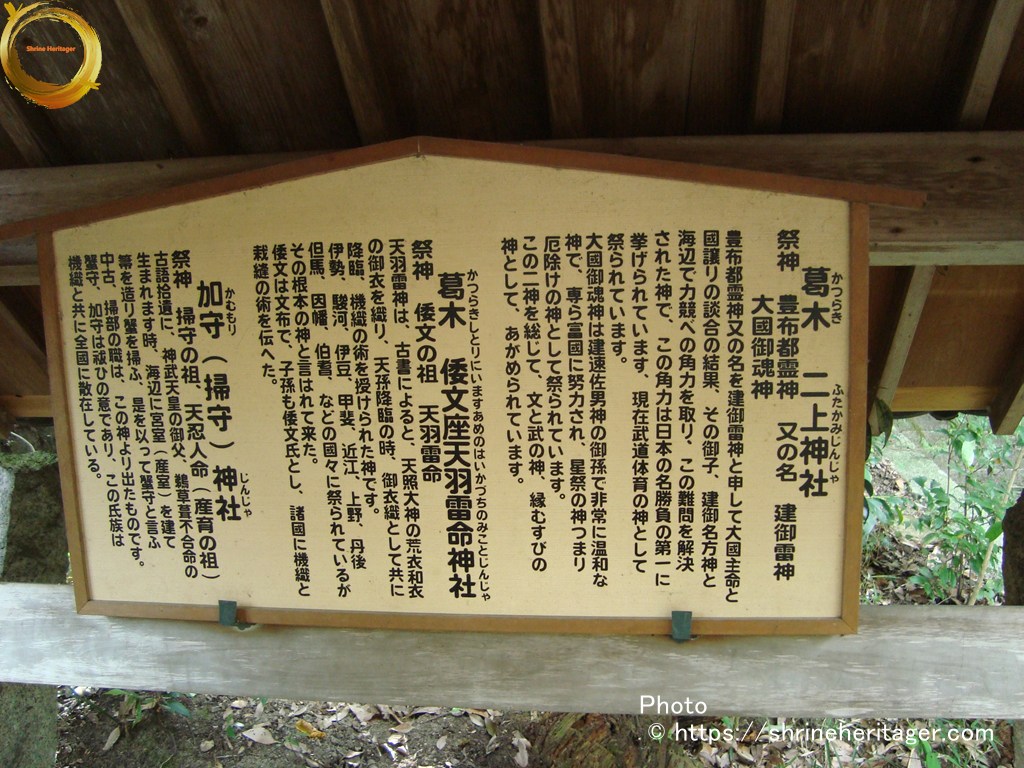 Shrine Heritager
葛木 二上神社
かつらき ふたかみじんじゃ
祭神 豊布都霊神 又の名 建御雷神
大國御魂神
豊布都霊神又の名を建御雷神と申して大國主命と
國譲りの談合の結果、その御子、建御名方神と
海辺で力競べの角力を取り、この難問を解決
された神で、この角力は日本の名勝負の第一に
挙げられています、現在武道体育の神として
祭られています。
大國御魂神は建速佐男神の御孫で非常に温和な
神で、専ら富國に努力され、星祭の神つまり
厄除けの神として祭られています。
この二神を総じて、文と武の神、縁むすびの
神として、あがめられています。
葛木 倭文座天羽雷命神社
かつらきしとりにいますあめのはいかづちのみことじんじゃ
祭神 倭文の祖 天羽雷命
天羽雷神は、古書によると、天照大神の荒衣和衣
の御衣を織り、天孫降臨の時、御衣織として共に
降臨、機織の術を授けられた神です。
伊勢、駿河、伊豆、甲斐、近江、上野、丹後
但馬、因幡、伯耆、などの國々に祭られているが
その根本の神と言はれて来た。
倭文は文布で、子孫も倭文氏とし、諸國に機織と
裁縫の術を伝へた。
加守(掃守)神社
かむもり じんじゃ
祭神 掃守の祖、天忍人命(産育の祖)
古語拾遺に、神武天皇の御父、鵜草葺不合命の
生まれます時、海辺に宮室(産室)を建て
箒を造り蟹を掃ふ、是を以って蟹守と言ふ
中古、掃部の職は、この神より出たものです。
蟹守、加守は祓ひの意であり、この氏族は
機織と共に全國に散在している。
Photo
© https://shrineheritager.com